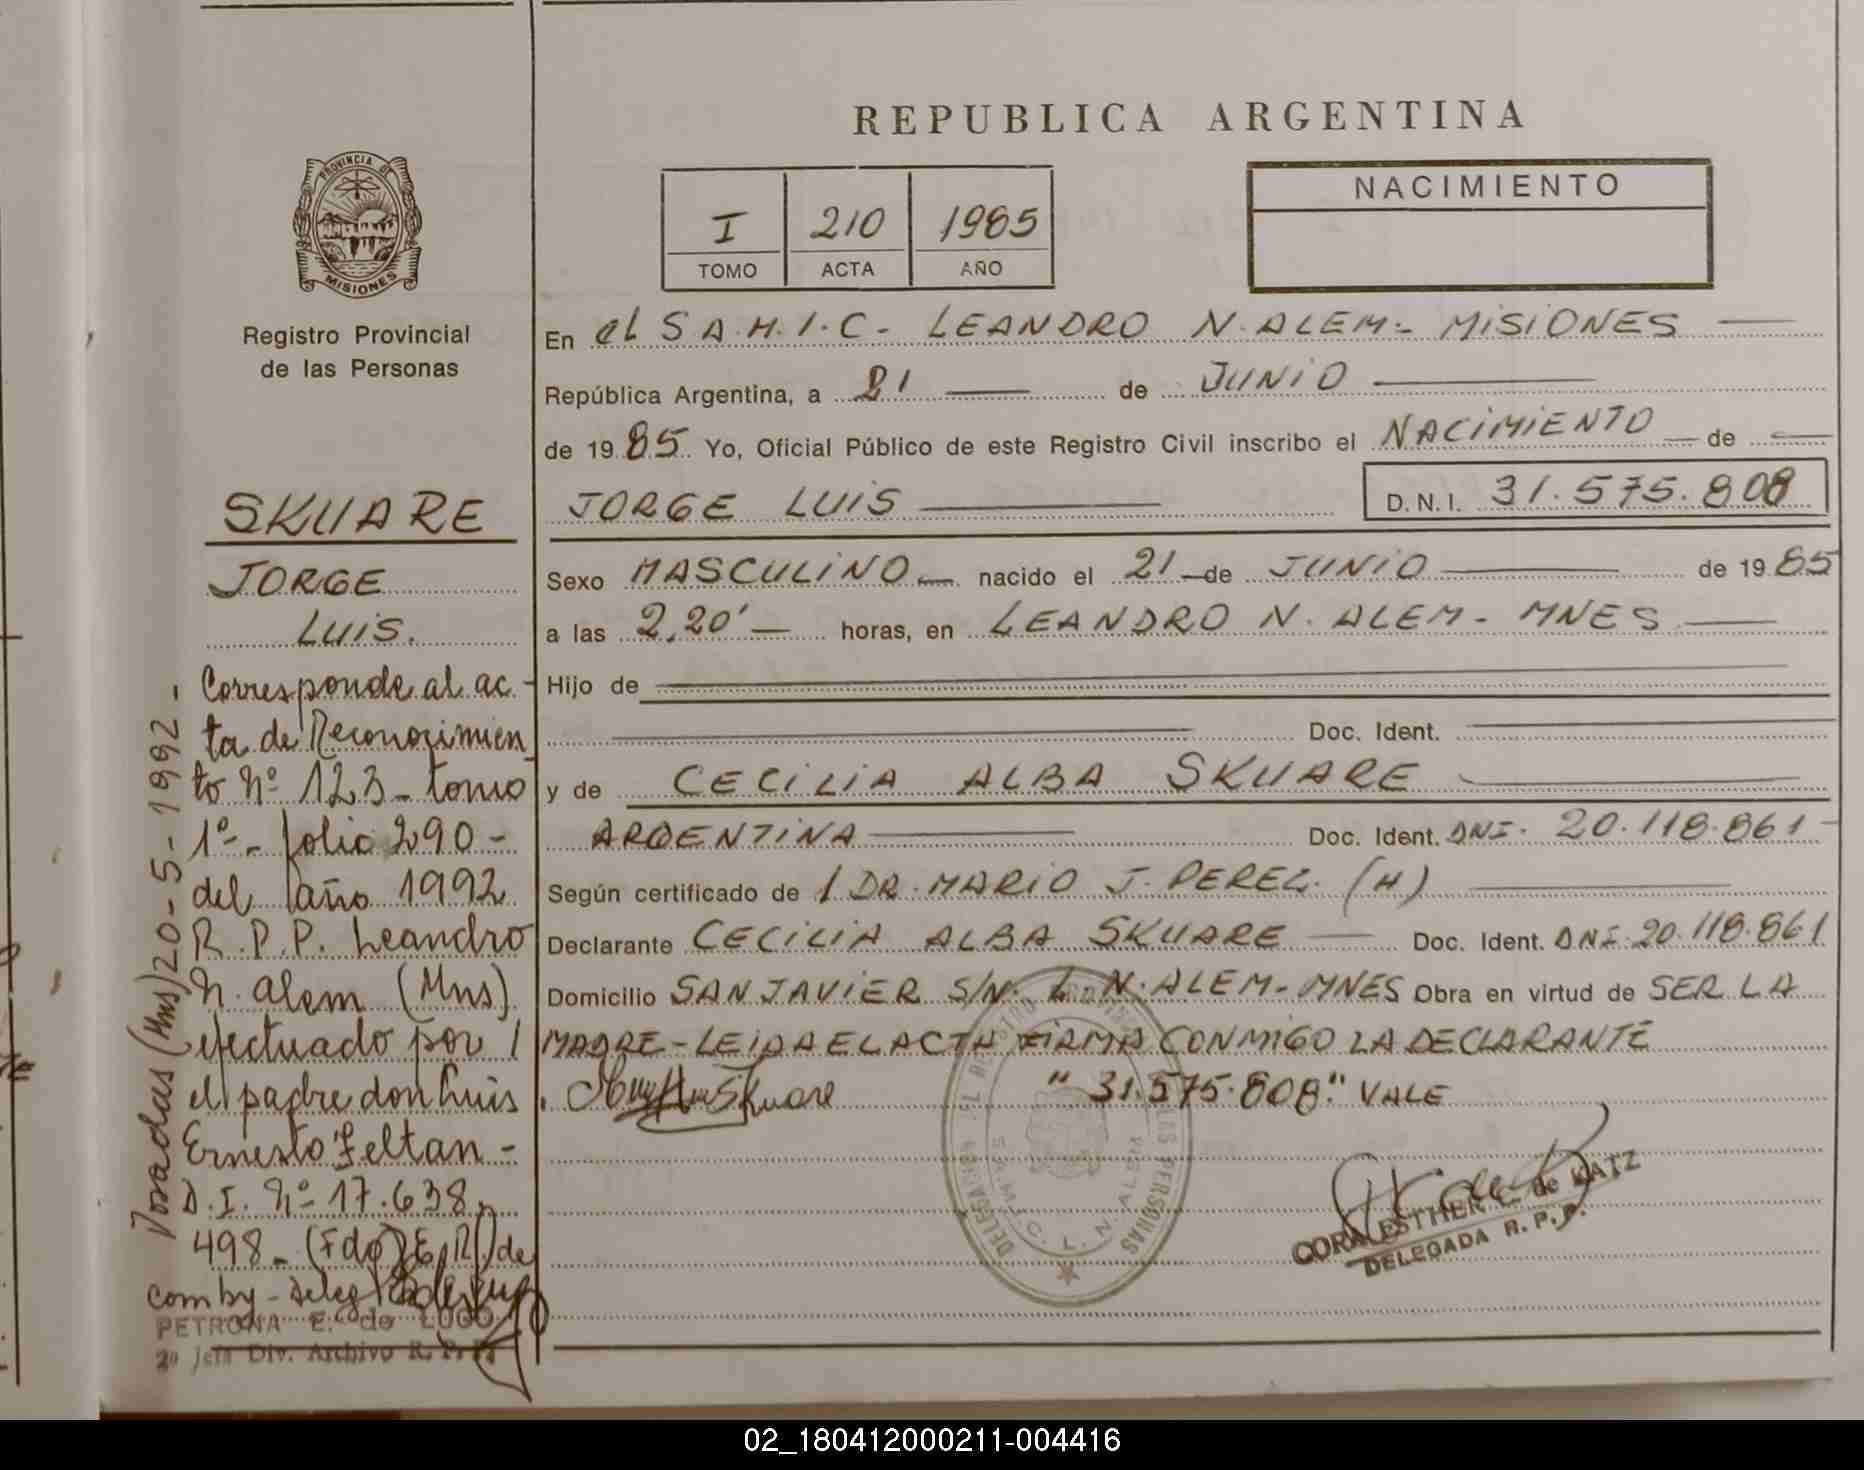 REPUBLICA ARGENTINA
PROVINCIA DE
MISIONES
Registro Provincial
de las Personas
I 210 1985
TOMO ACTA AÑO
NACIMIENTO
En el S.A.M.I.C- LEANDRO N. ALEM- MISIONES
República Argentina, a 21 de JUNIO
de 1985 Yo, Oficial Público de este Registro Civil inscribo el NACIMIENTO de
JORGE LUIS D.N.I. 31.575.808
Sexo MASCULINO nacido el 21 de JUNIO de 1985
a las 2,20' horas, en LEANDRO N. ALEM- MNES
Hijo de
Doc. Ident.
y de CECILIA ALBA SKUARE
ARGENTINA Doc. Ident. DNI. 20.118.861-
Según certificado de / DR. MARIO J. PEREZ. (H)
Declarante CECILIA ALBA SKUARE Doc. Ident. DNI 20.118.861
Domicilio SAN JAVIER S/N. L. N. ALEM- MNES Obra en virtud de SER LA
MADRE- LEIDA EL ACTA FIRMA CONMIGO LA DECLARANTE
Skuare "31.575.808" VALE
CORA ESTHER C. de KATZ
DELEGADA R. P. P.
SKUARE
JORGE
LUIS.
Corresponde al ac-
ta de Reconocimien
to Nº 123- tomo
1º- folio 290-
del año 1992
R.P.P. Leandro
N. Alem (Mns)
efectuado por /
el padre don Luis
Ernesto Feltan-
D.I. Nº 17.638.
498- (Fdo) E. R. de
Comby- Deleg
Posadas (Mns) 20-5-1992-
PETRONA E. de LUGO
2º Jefa Div. Archivo R. P. P.
02_180412000211-004416